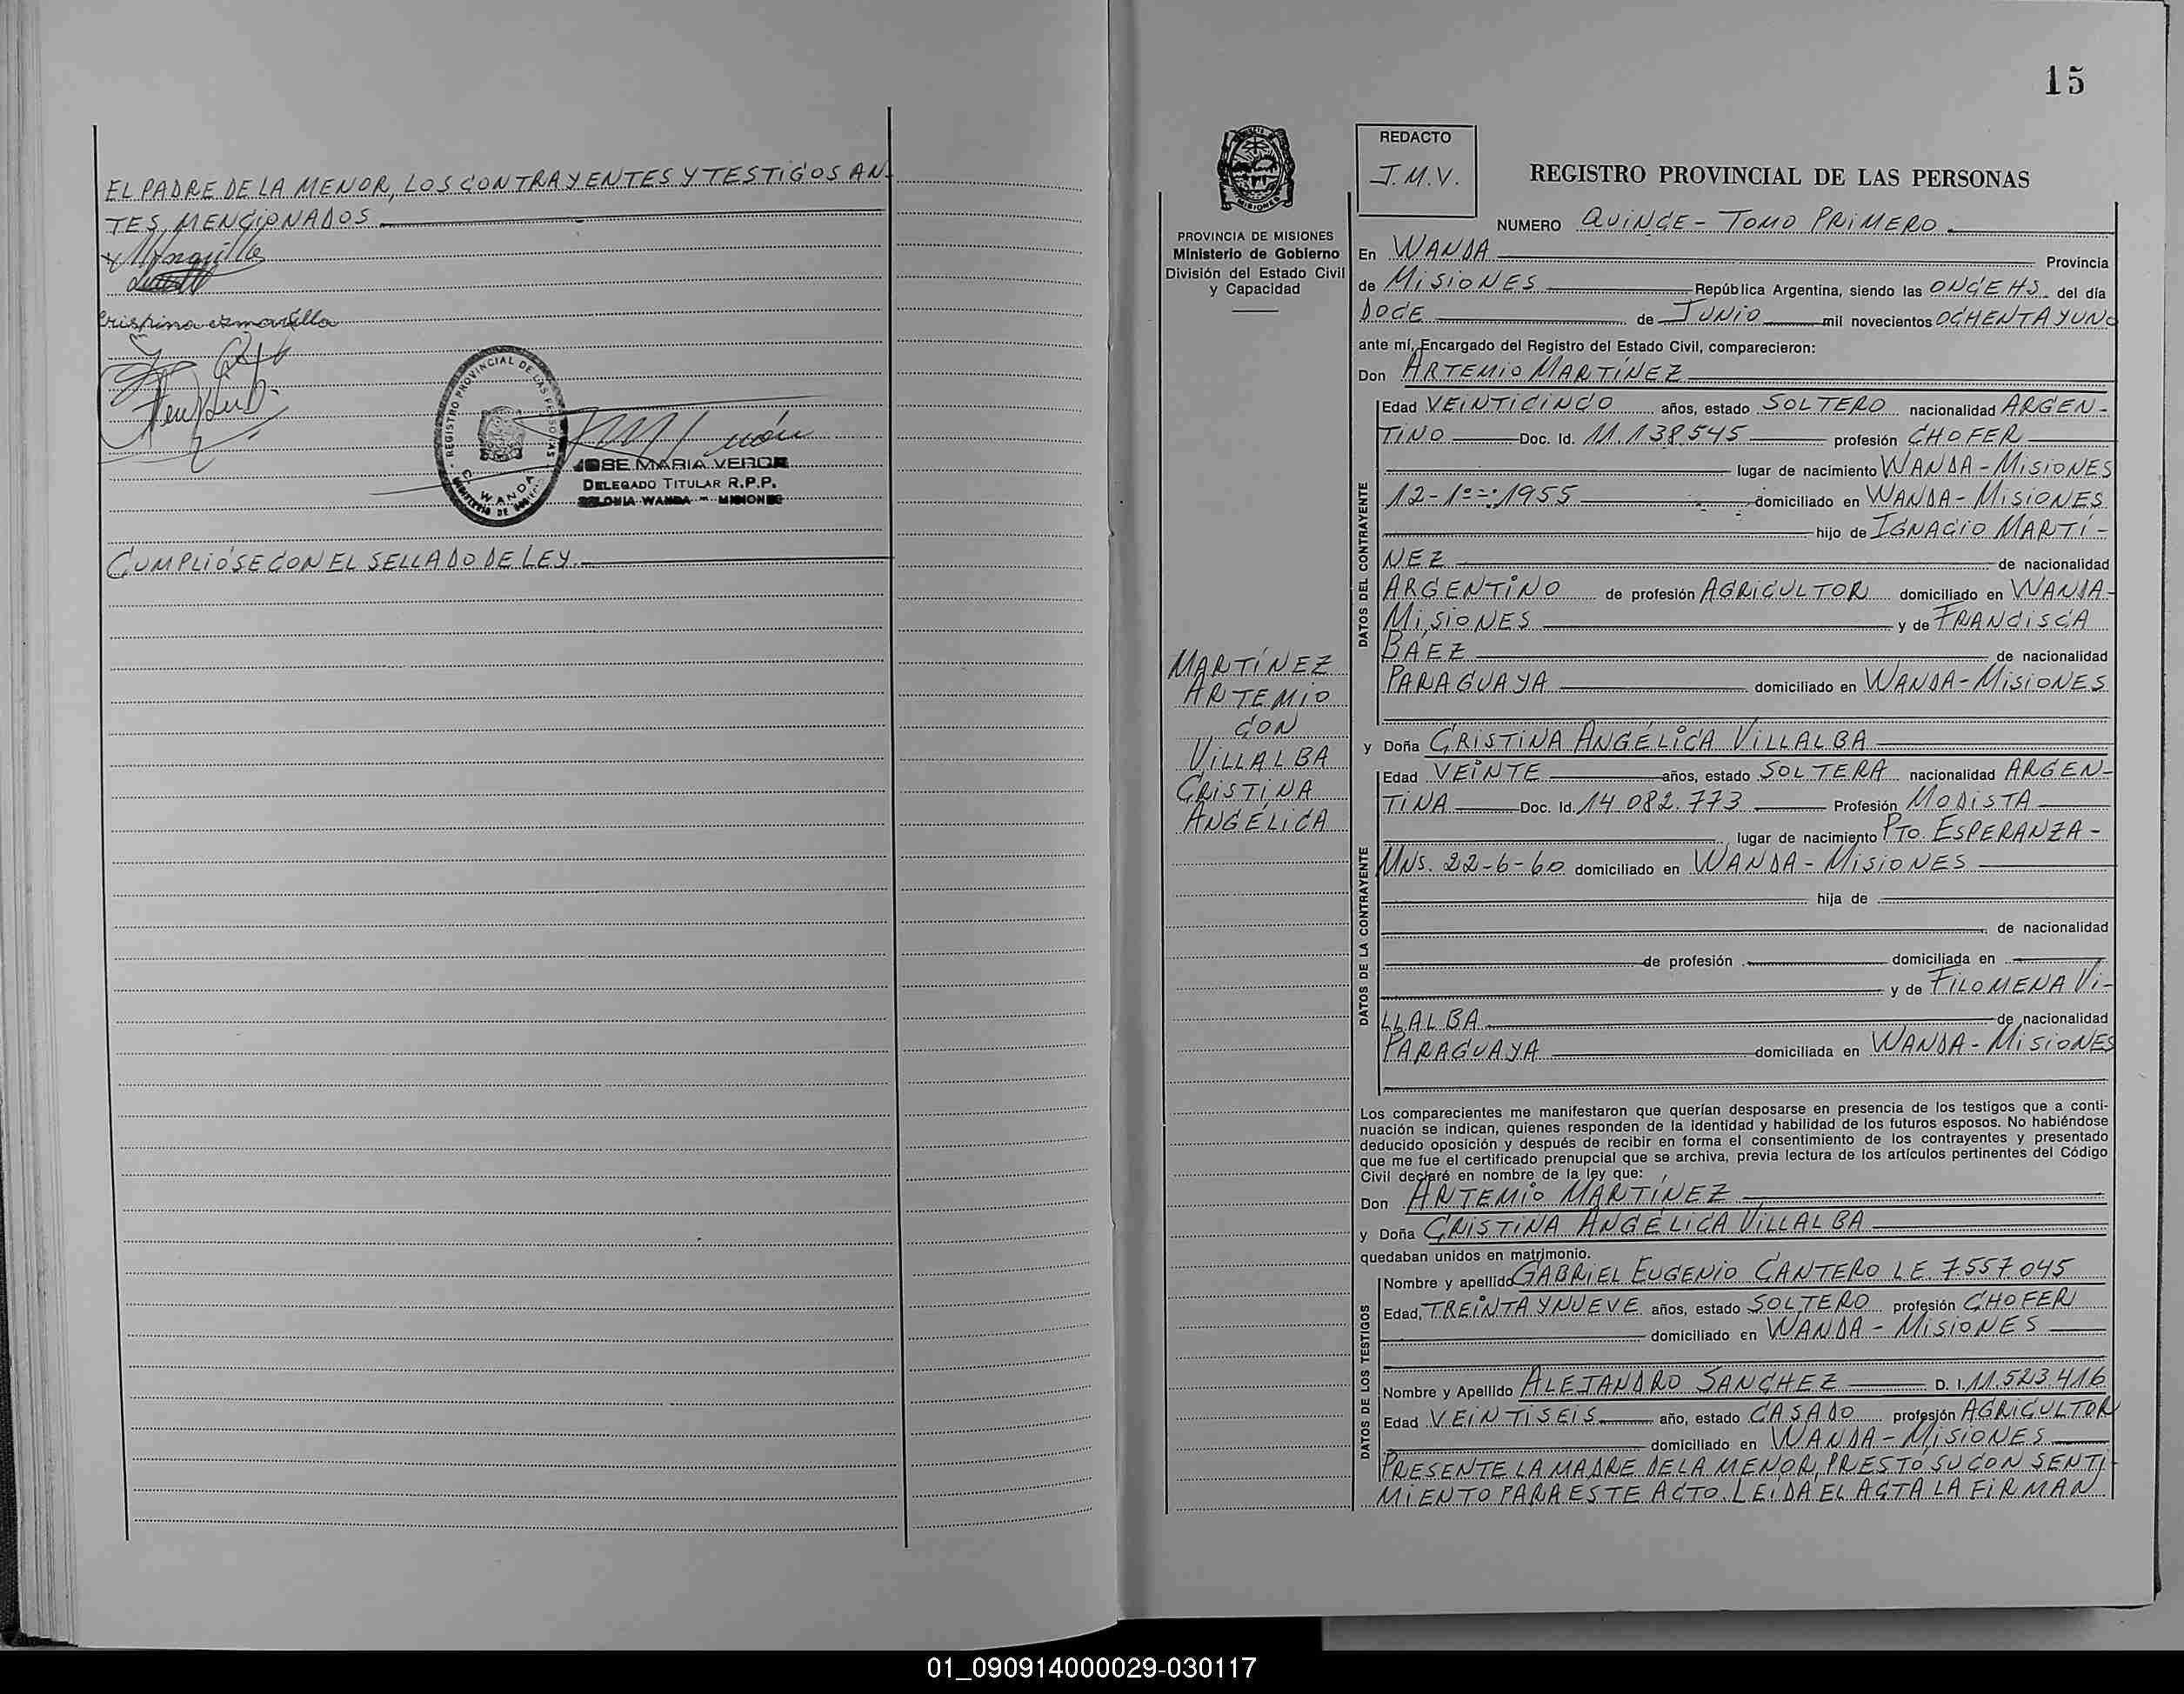 EL PADRE DE LA MENOR, LOS CONTRAYENTES Y TESTIGOS AN-
TES MENCIONADOS
REGISTRO PROVINCIAL DE LAS PERSONAS
WANDA
JOSE MARIA VERON
DELEGADO TITULAR R.P.P.
COLONIA WANDA - MISIONES
CUMPLIÓSE CON EL SELLADO DE LEY.
15
PROVINCIA DE MISIONES
Ministerio de Gobierno
División del Estado Civil
y Capacidad
MARTÍNEZ
ARTEMIO
CON
VILLALBA
CRISTINA
ANGÉLICA
REDACTO
J.M.V.
REGISTRO PROVINCIAL DE LAS PERSONAS
NUMERO QUINCE - TOMO PRIMERO
En WANDA Provincia
de MISIONES República Argentina, siendo las ONCE HS. del día
DOCE de JUNIO mil novecientos OCHENTA Y UNO
ante mí, Encargado del Registro del Estado Civil, comparecieron:
Don ARTEMIO MARTÍNEZ
DATOS DEL CONTRAYENTE
Edad VEINTICINCO años, estado SOLTERO nacionalidad ARGEN-
TINO Doc. Id. 11.138.545 profesión CHOFER
lugar de nacimiento WANDA - MISIONES
12-1º-1955 domiciliado en WANDA - MISIONES
hijo de IGNACIO MARTÍ-
NEZ de nacionalidad
ARGENTINO de profesión AGRICULTOR domiciliado en WANDA-
MISIONES y de FRANCISCA
BÁEZ de nacionalidad
PARAGUAYA domiciliado en WANDA - MISIONES
y Doña CRISTINA ANGÉLICA VILLALBA
DATOS DE LA CONTRAYENTE
Edad VEINTE años, estado SOLTERA nacionalidad ARGEN-
TINA Doc. Id. 14.082.773 Profesión MODISTA
lugar de nacimiento PTO. ESPERANZA -
MNS. 22-6-60 domiciliado en WANDA - MISIONES
hija de
de nacionalidad
de profesión domiciliada en
y de FILOMENA VI-
LLALBA de nacionalidad
PARAGUAYA domiciliada en WANDA - MISIONES
Los comparecientes me manifestaron que querían desposarse en presencia de los testigos que a conti-
nuación se indican, quienes responden de la identidad y habilidad de los futuros esposos. No habiéndose
deducido oposición y después de recibir en forma el consentimiento de los contrayentes y presentado
que me fue el certificado prenupcial que se archiva, previa lectura de los artículos pertinentes del Código
Civil declaré en nombre de la ley que:
Don ARTEMIO MARTÍNEZ
y Doña CRISTINA ANGÉLICA VILLALBA
quedaban unidos en matrimonio.
DATOS DE LOS TESTIGOS
Nombre y apellido GABRIEL EUGENIO CANTERO L.E. 7.557.045
Edad, TREINTA Y NUEVE años, estado SOLTERO profesión CHOFER
domiciliado en WANDA - MISIONES
Nombre y Apellido ALEJANDRO SANCHEZ D. I. 11.523.416
Edad VEINTISEIS año, estado CASADO profesión AGRICULTOR
domiciliado en WANDA - MISIONES
PRESENTE LA MADRE DE LA MENOR, PRESTÓ SU CONSENTI-
MIENTO PARA ESTE ACTO. LEIDA EL ACTA LA FIRMAN
01_090914000029-030117